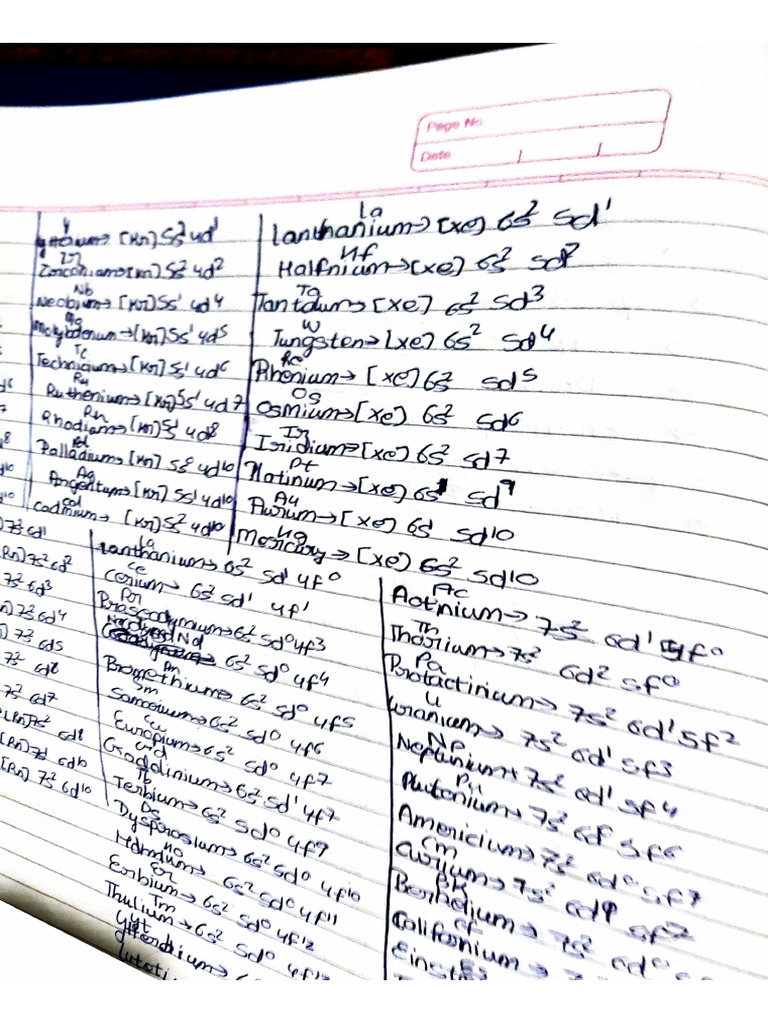 Page No.
Date
Y
yttrium → [Kr] 5s² 4d¹
Zr
Zirconium → [Kr] 5s² 4d²
Nb
Neobium → [Kr] 5s¹ 4d⁴
Molybdenum → [Kr] 5s¹ 4d⁵
Tc
Technicium → [Kr] 5s¹ 4d⁶
Ru
Ruthenium → [Kr] 5s¹ 4d⁷
Rh
Rhodium → [Kr] 5s¹ 4d⁸
Pd
Palladium → [Kr] 5s⁰ 4d¹⁰
Ag
Argentum → [Kr] 5s¹ 4d¹⁰
Cd
Cadmium → [Kr] 5s² 4d¹⁰
La
Lanthanium → [Xe] 6s² 5d¹
Hf
Halfnium → [Xe] 6s² 5d²
Ta
Tantalum → [Xe] 6s² 5d³
W
Tungsten → [Xe] 6s² 5d⁴
Re
Rhenium → [Xe] 6s² 5d⁵
Os
Osmium → [Xe] 6s² 5d⁶
Ir
Iridium → [Xe] 6s² 5d⁷
Pt
Platinum → [Xe] 6s¹ 5d⁹
Au
Aurum → [Xe] 6s¹ 5d¹⁰
Hg
Mercury → [Xe] 6s² 5d¹⁰
7s² 6d¹
Rn] 7s² 6d²
7s² 6d³
] 7s² 6d⁴
] 7s² 6d⁵
7s² 6d⁶
7s² 6d⁷
[Rn] 7s² 6d⁸
[Rn] 7s¹ 6d¹⁰
[Rn] 7s² 6d¹⁰
La
Lanthanium → 6s² 5d¹ 4f⁰
Ce
Cerium → 6s² 5d¹ 4f¹
Pr
Praseodymium → 6s² 5d⁰ 4f³
Nd
→ 6s² 5d⁰ 4f⁴
Pm
Promethium → 6s² 5d⁰ 4f⁵
Sm
Samarium → 6s² 5d⁰ 4f⁶
Eu
Europium → 6s² 5d⁰ 4f⁷
Gd
Gadolinium → 6s² 5d¹ 4f⁷
Tb
Terbium → 6s² 5d⁰ 4f⁹
Ds
Dysprosium → 6s² 5d⁰ 4f¹⁰
Ho
→ 6s² 5d⁰ 4f¹¹
Er
Erbium → 6s² 5d⁰ 4f¹²
Tm
Thulium → 6s² 5d⁰ 4f¹³
Ac
Actinium → 7s² 6d¹ 5f⁰
Th
Thorium → 7s² 6d² 5f⁰
Pa
Protactinium → 7s² 6d¹ 5f²
U
Uranium → 7s² 6d¹ 5f³
Np
Neptinium → 7s² 6d¹ 5f⁴
Pu
Plutonium → 7s² 6d⁰ 5f⁶
Americium → 7s² 6d⁰ 5f⁷
Cm
Curium → 7s² 6d¹ 5f⁷
BK
Berkelium → 7s² 6d⁰
Cf
Californium →
Es
Einst